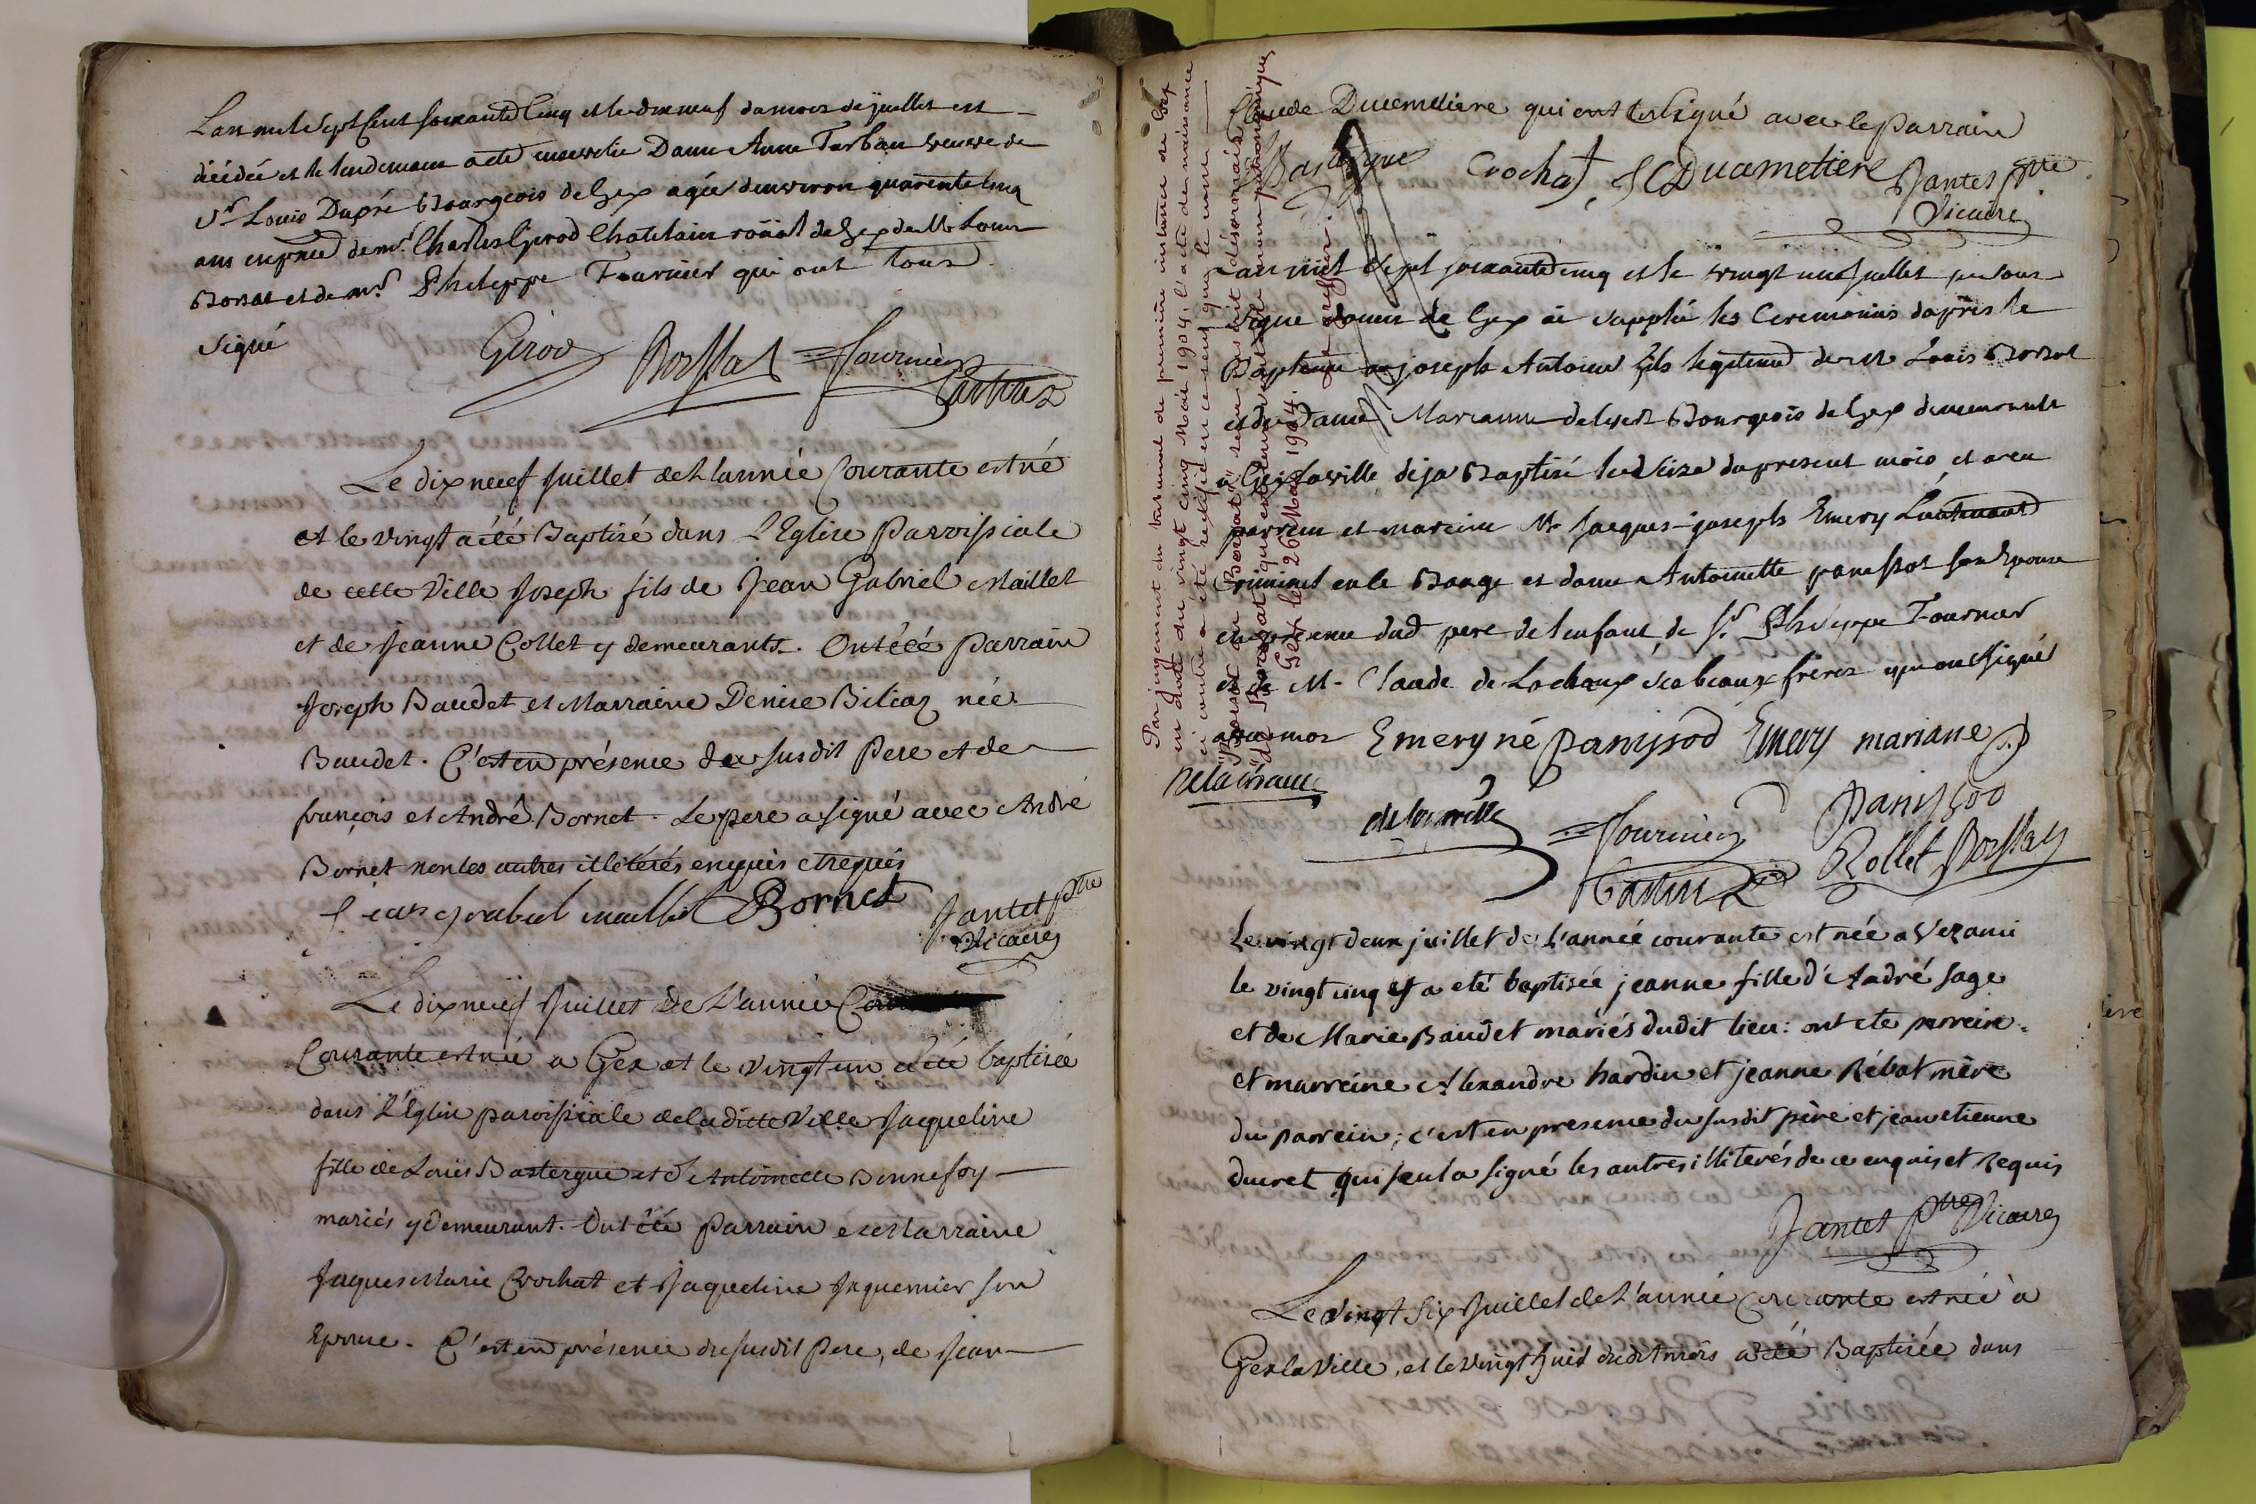 L'an mil sept cent soixante cinq et le dixneuf du mois de juillet est
décédée et le lendemain a été ensevelie Dame Anne Tarban veuve de
Sr. Louis Dupré Bourgeois de Gex agée d'environ quarente cinq
ans en pnce de mr. Charles Girod Chatelain roïal de Gex de Mr Louis
Borsat et de mr. Philippe Fournier qui ont tous
signé
Girod Borssat Fournier
Castin
Le dixneuf Juillet de L'année Courante est né
et le vingt a été Baptisé dans L'Eglise Parroissiale
de cette Ville Joseph fils de Jean Gabriel Maillet
et de Jeanne Collet y demeurants. Ont été Parrain
Joseph Baudet et Marraine Denise Bilicaz née
Baudet. C'est en présence du susdit Pere et de
françois et André Bornet. Le pere a signé avec André
Bornet non les autres illétérés enquis et requis
Jean gabriel maillet Bornet
Jantet ptre
Vicaire
Le dixneuf Juillet de L'année Cou
Courante est née a Gex et le vingt un a été baptisée
dans L'Eglise paroissiale de laditte Ville Jaqueline
fille de Louis Bastergue et d'Antoinette Bonnefoy
mariés y demeurant. Ont été Parrain et Marraine
Jaques Marie Crochat et Jaqueline Jaquemier son
Epouse. C'est en présence du susdit Pere, de Jean
Claude Ducimetiere qui ont signé avec le Parrain
Bastergue Crochat, JC Ducimetiere Jantet ptre
Vicaire
Par jugement du tribunal de première instance de Gex
en date du vingt cinq Mai 1904, l'acte de naissance
ci contre a été rectifié en ce sens que le nom
"Borsat ou Borssat" sera désormais
"de Borssat" qui est le nom patronymique
Gex le 26 Mai 1904. Le greffier:
L'an mil sept soixante cinq et le vingt un Juillet je sous
signé doien de Gex ai supplée les Ceremonies d'aprês le
Baptême a joseph Antoine fils legitime de Mr Louis Borsat
et de Dame Marianne delesers Bourgeois de Gex demeurants
a Gex la ville deja Baptisé le seize du present mois et a eu
parrein et mareine Mr Jacques-joseph Emery Lieutenant
Criminel en le et dame Antoinette panissot son Epouse
en presence dud pere de l'enfant de Sr Philippe Fournier
et de Mr Claude de Lachaux ses beaux freres qui ont signé
avec moi Emery né Panissod Emery mariane
Delachaux
Fournier Panissod
Castin Rollet Borssat
Le vingt deux juillet de L'année courante est née a Vezanci
le vingt cinq et a eté baptisée jeanne fille d'André sage
et de Marie Baudet mariés dudit lieu: ont ete parrein
et marreine Alexandre hardin et jeanne Rébat mère
du parrein; c'est en presence du susdit père et jean etienne
ducret qui seul a signé les autres illiterés de ce enquis et Requis
Jantet ptre Vicaire
Le vingt six Juillet de L'année Courante est née à
Gex la Ville, et le vingt huit dudit mois a été Baptisée dans